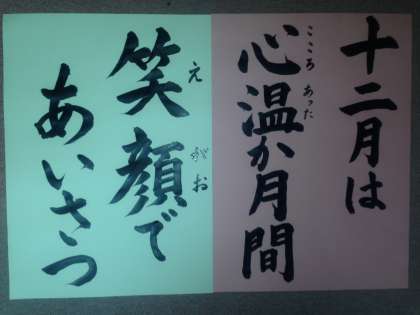 十二月は
心温か月間
こころ あった
笑顔で
えがお
あいさつ